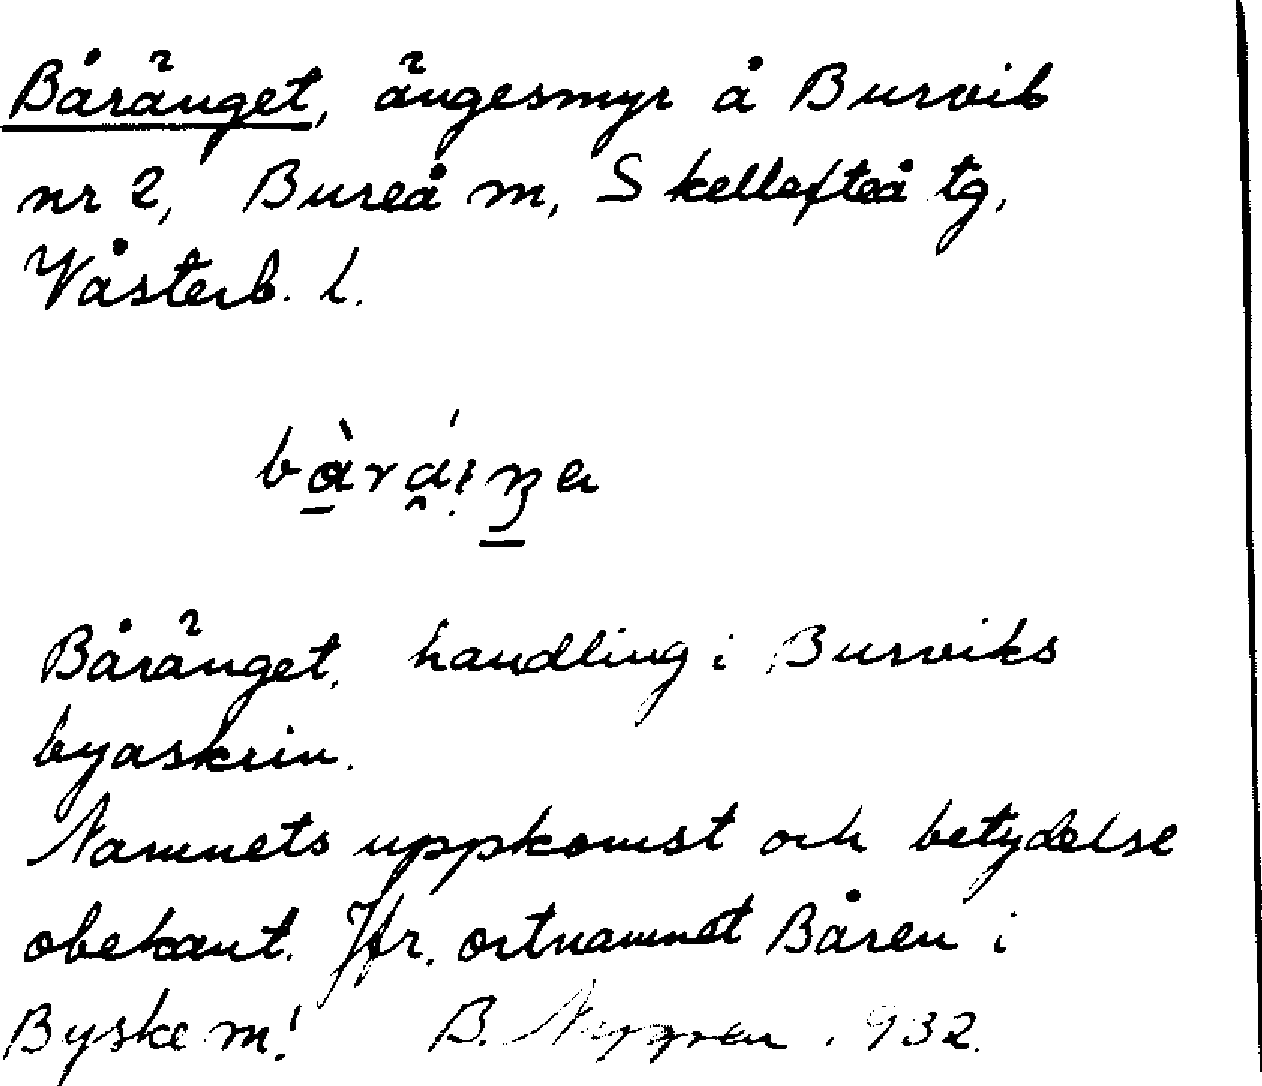 Båränget, ängesmyr å Burvik
nr 2, Bureå m, Skellefteå tg,
Västerb. l.
Båränget, handling i Burviks
byaskrin.
Namnets uppkomst och betydelse
obekant. Jfr. ortnamnet Båren i
Byske m! B. Nygren. 932.